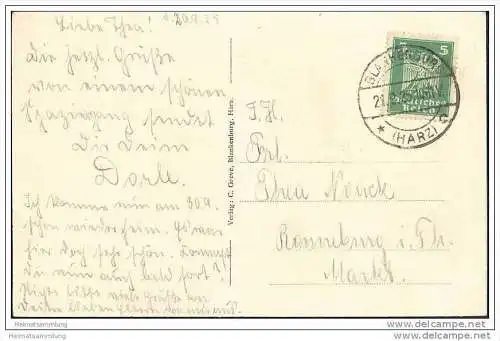 Liebe Thea!
Die herzl. Grüße
von einem schönen
Spaziergang sendet
Dir Deine
Dorle.
Ich komme nun am 30.9.
schon wieder heim. Es war
hier doch sehr schön. Kommst
Du nun auch bald fort?
viele Grüße an
Deine lieben Eltern
Verlag: C. Greve, Blankenburg, Harz.
BLANKENBURG
(HARZ)
5 5
Deutsches
Reich
Frl.
Thea
Ronneburg i. Th.
Markt
Heimatsammlung
Heimatsammlung